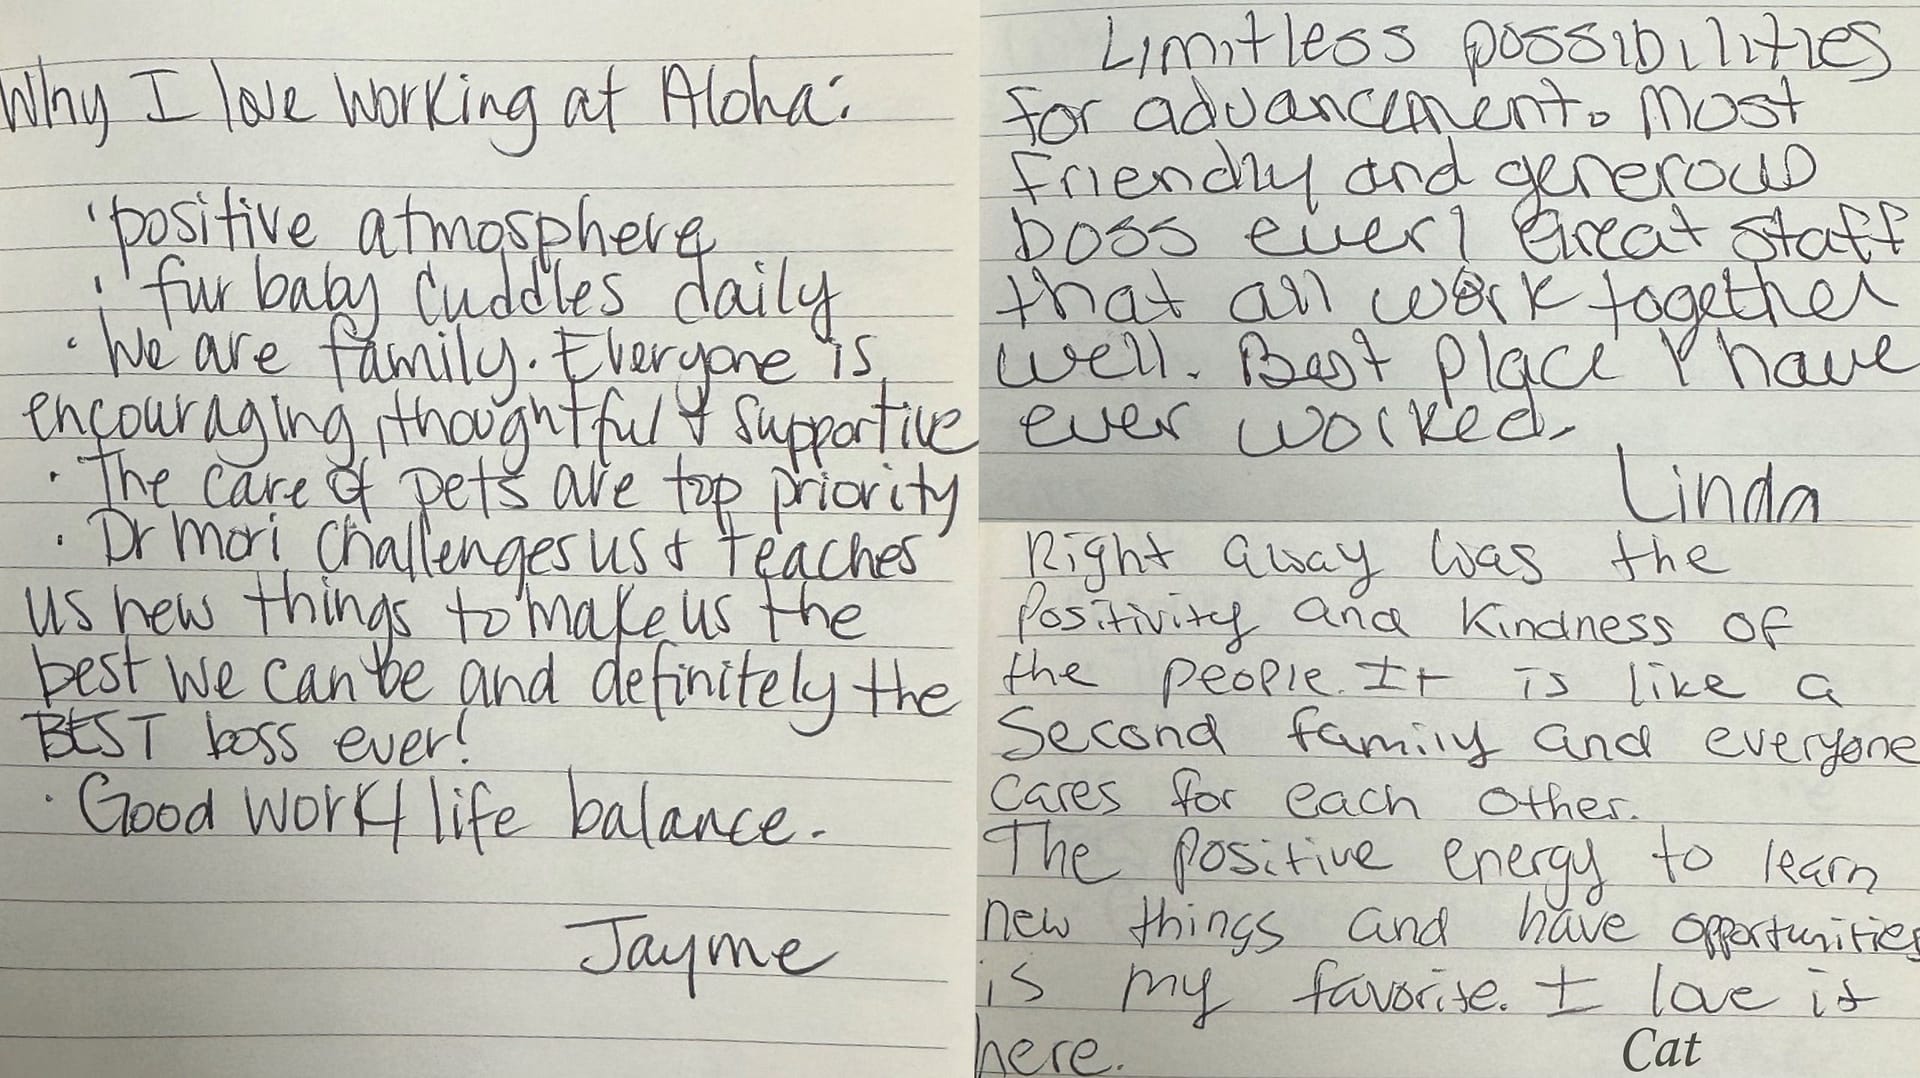 Why I love working at Aloha:
· positive atmosphere
· fur baby cuddles daily
· We are family. Everyone is
encouraging, thoughtful & supportive
· The care of pets are top priority
· Dr Mori challenges us & teaches
us new things to make us the
best we can be and definitely the
BEST boss ever!
· Good work/life balance.
Jayme
Limitless possibilities
for advancement. Most
friendly and generous
boss ever! Great staff
that all work together
well. Best place I have
ever worked.
Linda
Right away was the
positivity and kindness of
the people. It is like a
second family and everyone
cares for each other.
The positive energy to learn
new things and have opportunities
is my favorite. I love it
here.
Cat